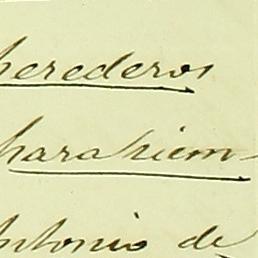 herederos
para siem-
Antonio de